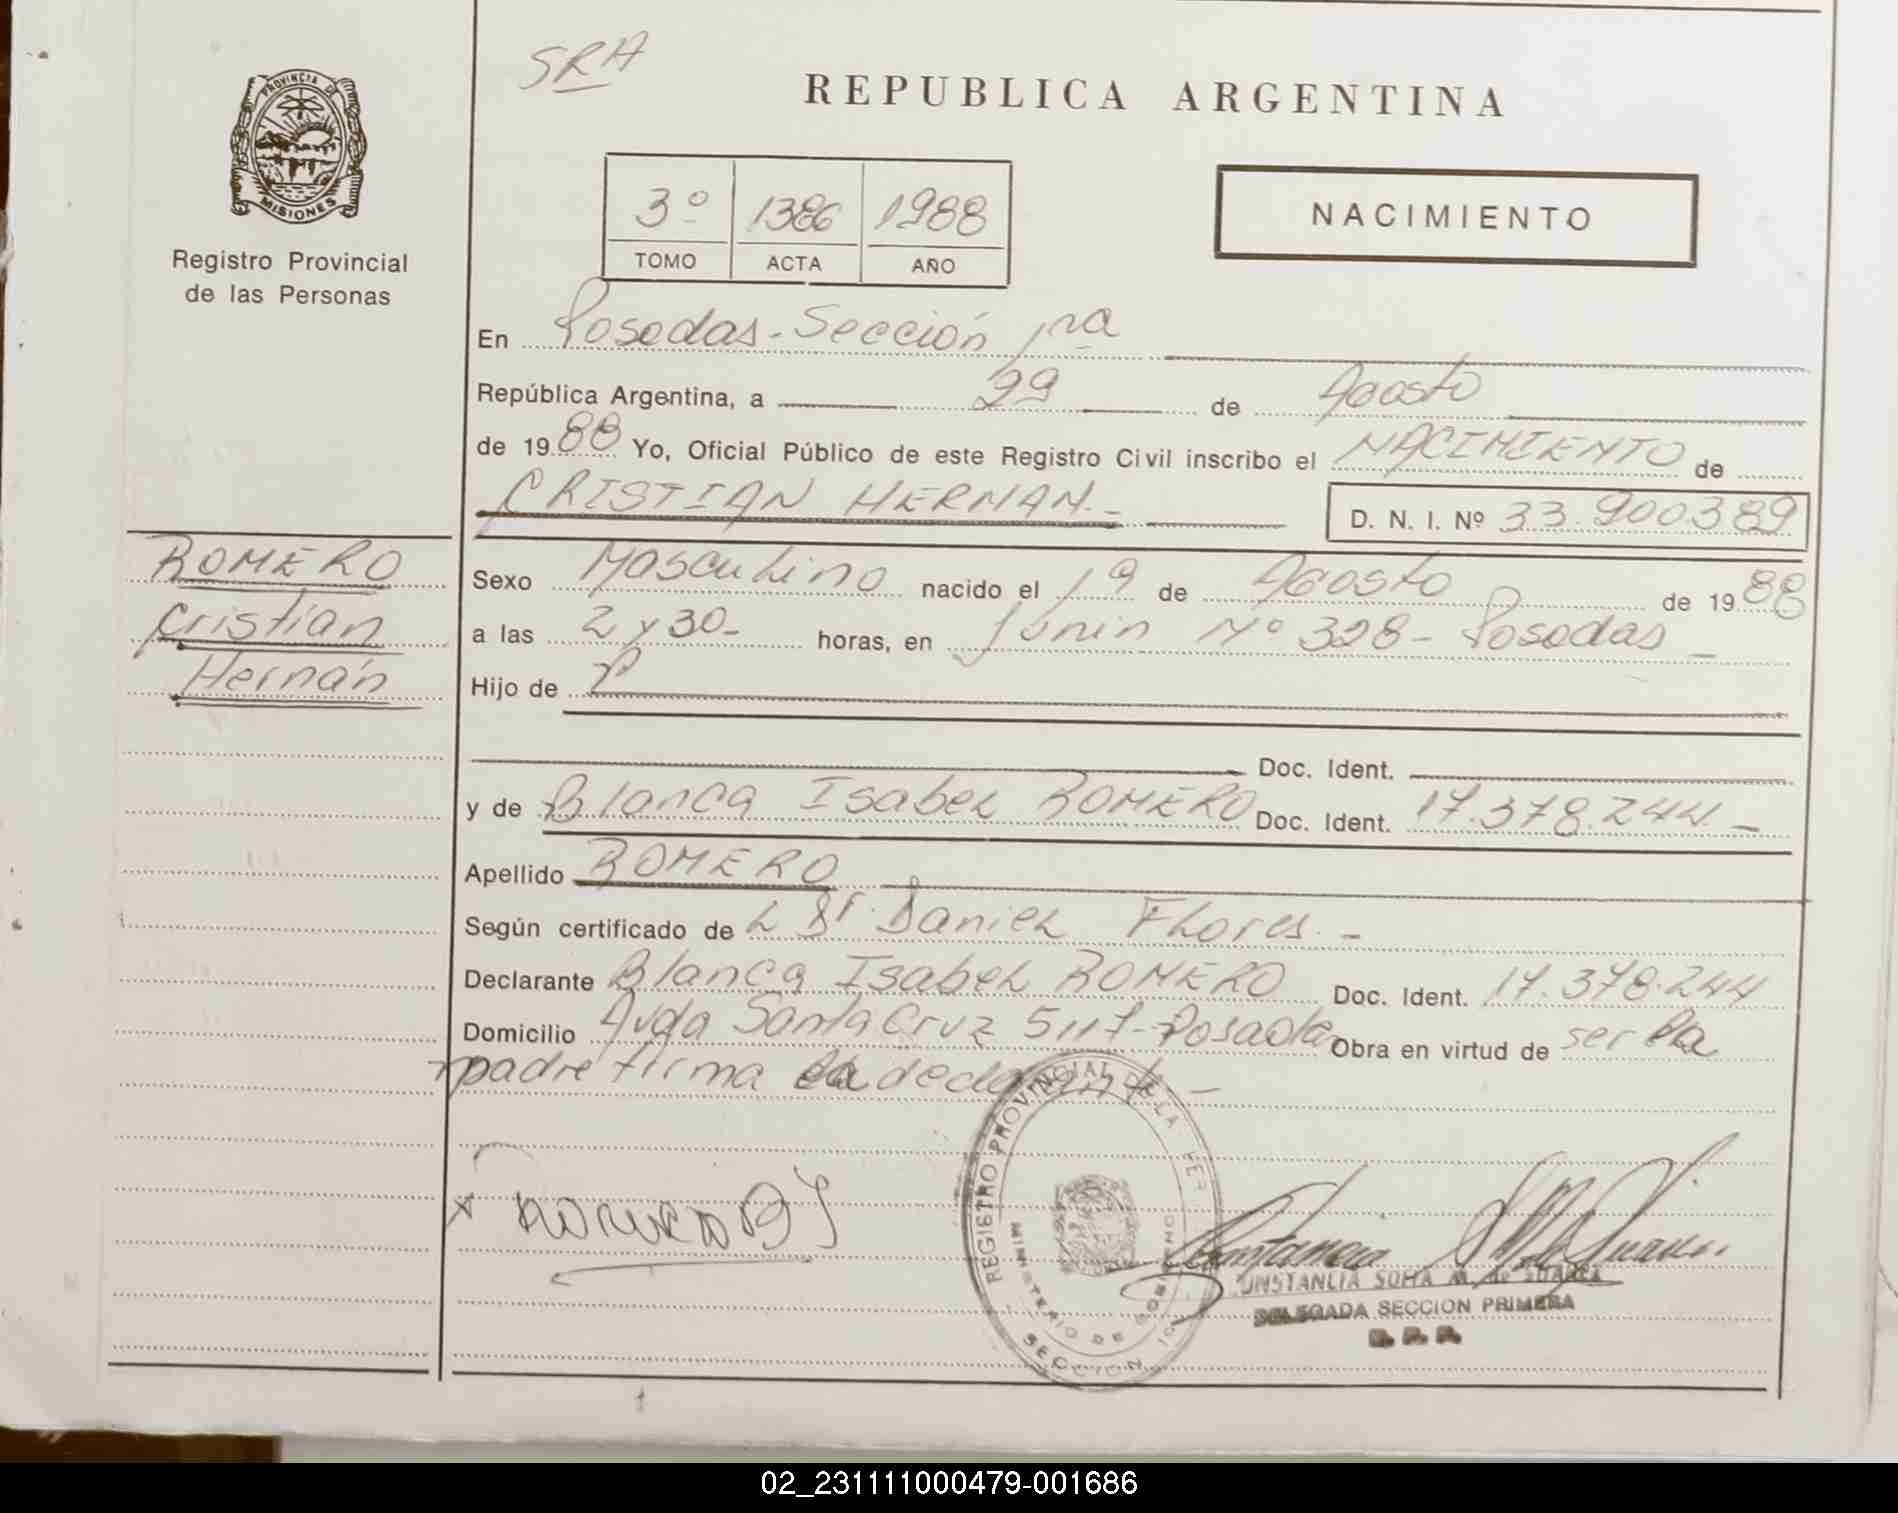 SRA
REPUBLICA ARGENTINA
PROVINCIA DE
MISIONES
Registro Provincial
de las Personas
3º 1386 1988
TOMO ACTA AÑO
NACIMIENTO
En Posadas - Sección 1ra
República Argentina, a 29 de Agosto
de 1988 Yo, Oficial Público de este Registro Civil inscribo el NACIMIENTO de
CRISTIAN HERNAN.- D. N. I. Nº 33.900389
ROMERO
Cristian
Hernán
Sexo Masculino nacido el 19 de Agosto de 1988
a las 2 y 30- horas, en Junín Nº 328 - Posadas -
Hijo de
Doc. Ident.
y de Blanca Isabel ROMERO Doc. Ident. 17.378.244.-
Apellido ROMERO
Según certificado de L Dr. Daniel Flores.-
Declarante Blanca Isabel ROMERO Doc. Ident. 17.378.244
Domicilio Avda Santa Cruz 5117-Posadas Obra en virtud de ser la
madre firma la declarante -
REGISTRO PROVINCIAL DE LA PER
MINISTERIO DE GOBIERNO
SECCION 1
x ROMERO BI
CONSTANCIA SOFIA M. de SUAREZ
DELEGADA SECCION PRIMERA
R. P. P.
02_231111000479-001686